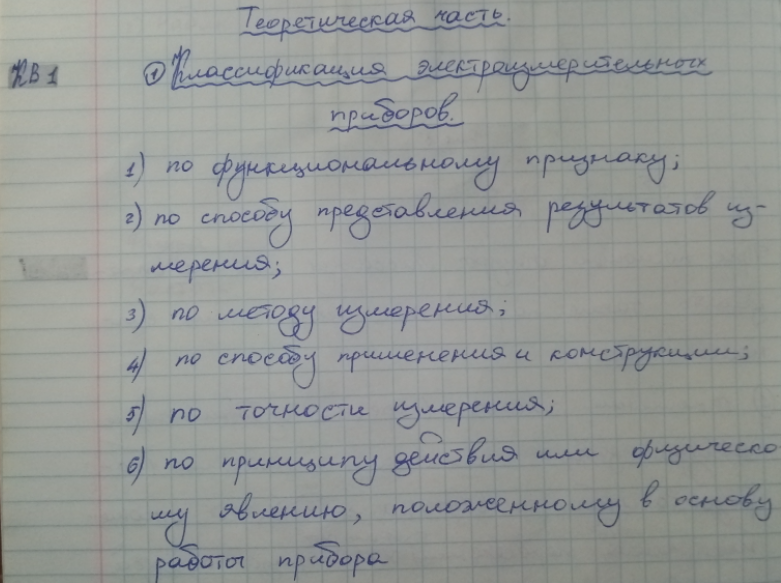 Теоретическая часть.
КВ 1
① Классификация электроизмерительных
приборов.
1) по функциональному признаку;
2) по способу представления результатов из-
мерения;
3) по методу измерения;
4) по способу применения и конструкции;
5) по точности измерения;
6) по принципу действия или физическо
му явлению, положенному в основу
работы прибора